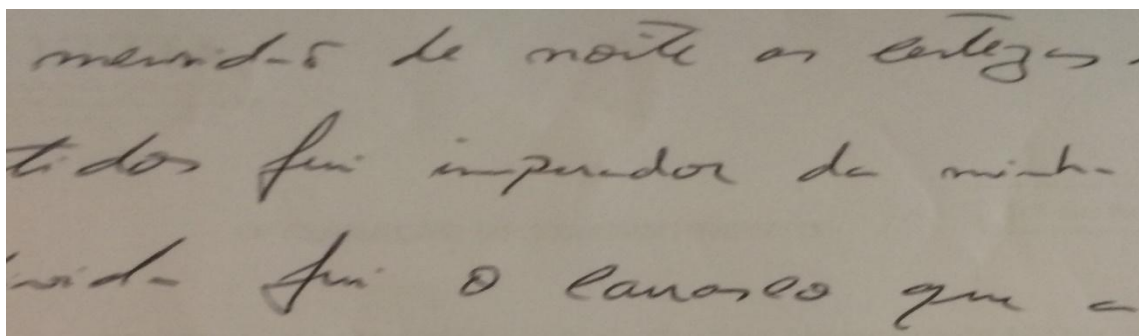 imensidão de noite as certezas
tidos fui imperador da minha
vida fui o carrasco que a